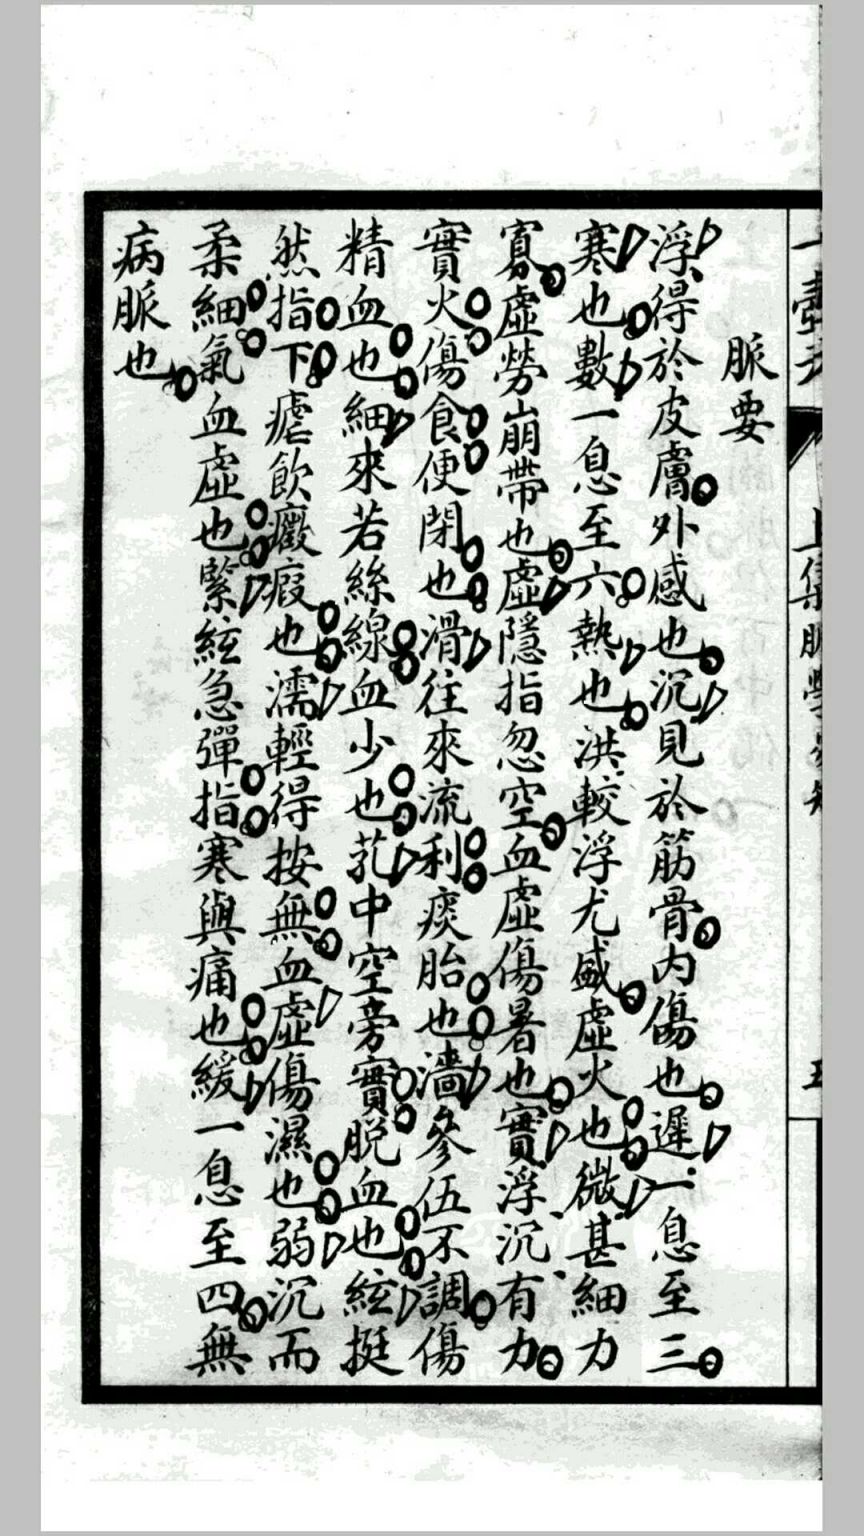 上集脈學
脈要
浮得於皮膚外感也沉見於筋骨内傷也遲一息至三
寒也數一息至六熱也洪較浮尤盛虛火也微甚細力
寡虛勞崩帶也虛隱指忽空血虛傷暑也實浮沉有力
實火傷食便閉也滑往來流利痰胎也濇參伍不調傷
精血也細來若絲線血少也芤中空旁實脱血也絃挺
然指下瘧飲癥瘕也濡輕得按無血虛傷濕也弱沉而
柔細氣血虛也緊絃急彈指寒與痛也緩一息至四無
病脈也